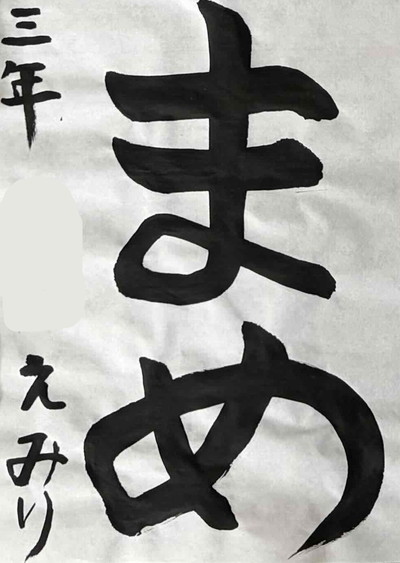 まめ
三年
えみり